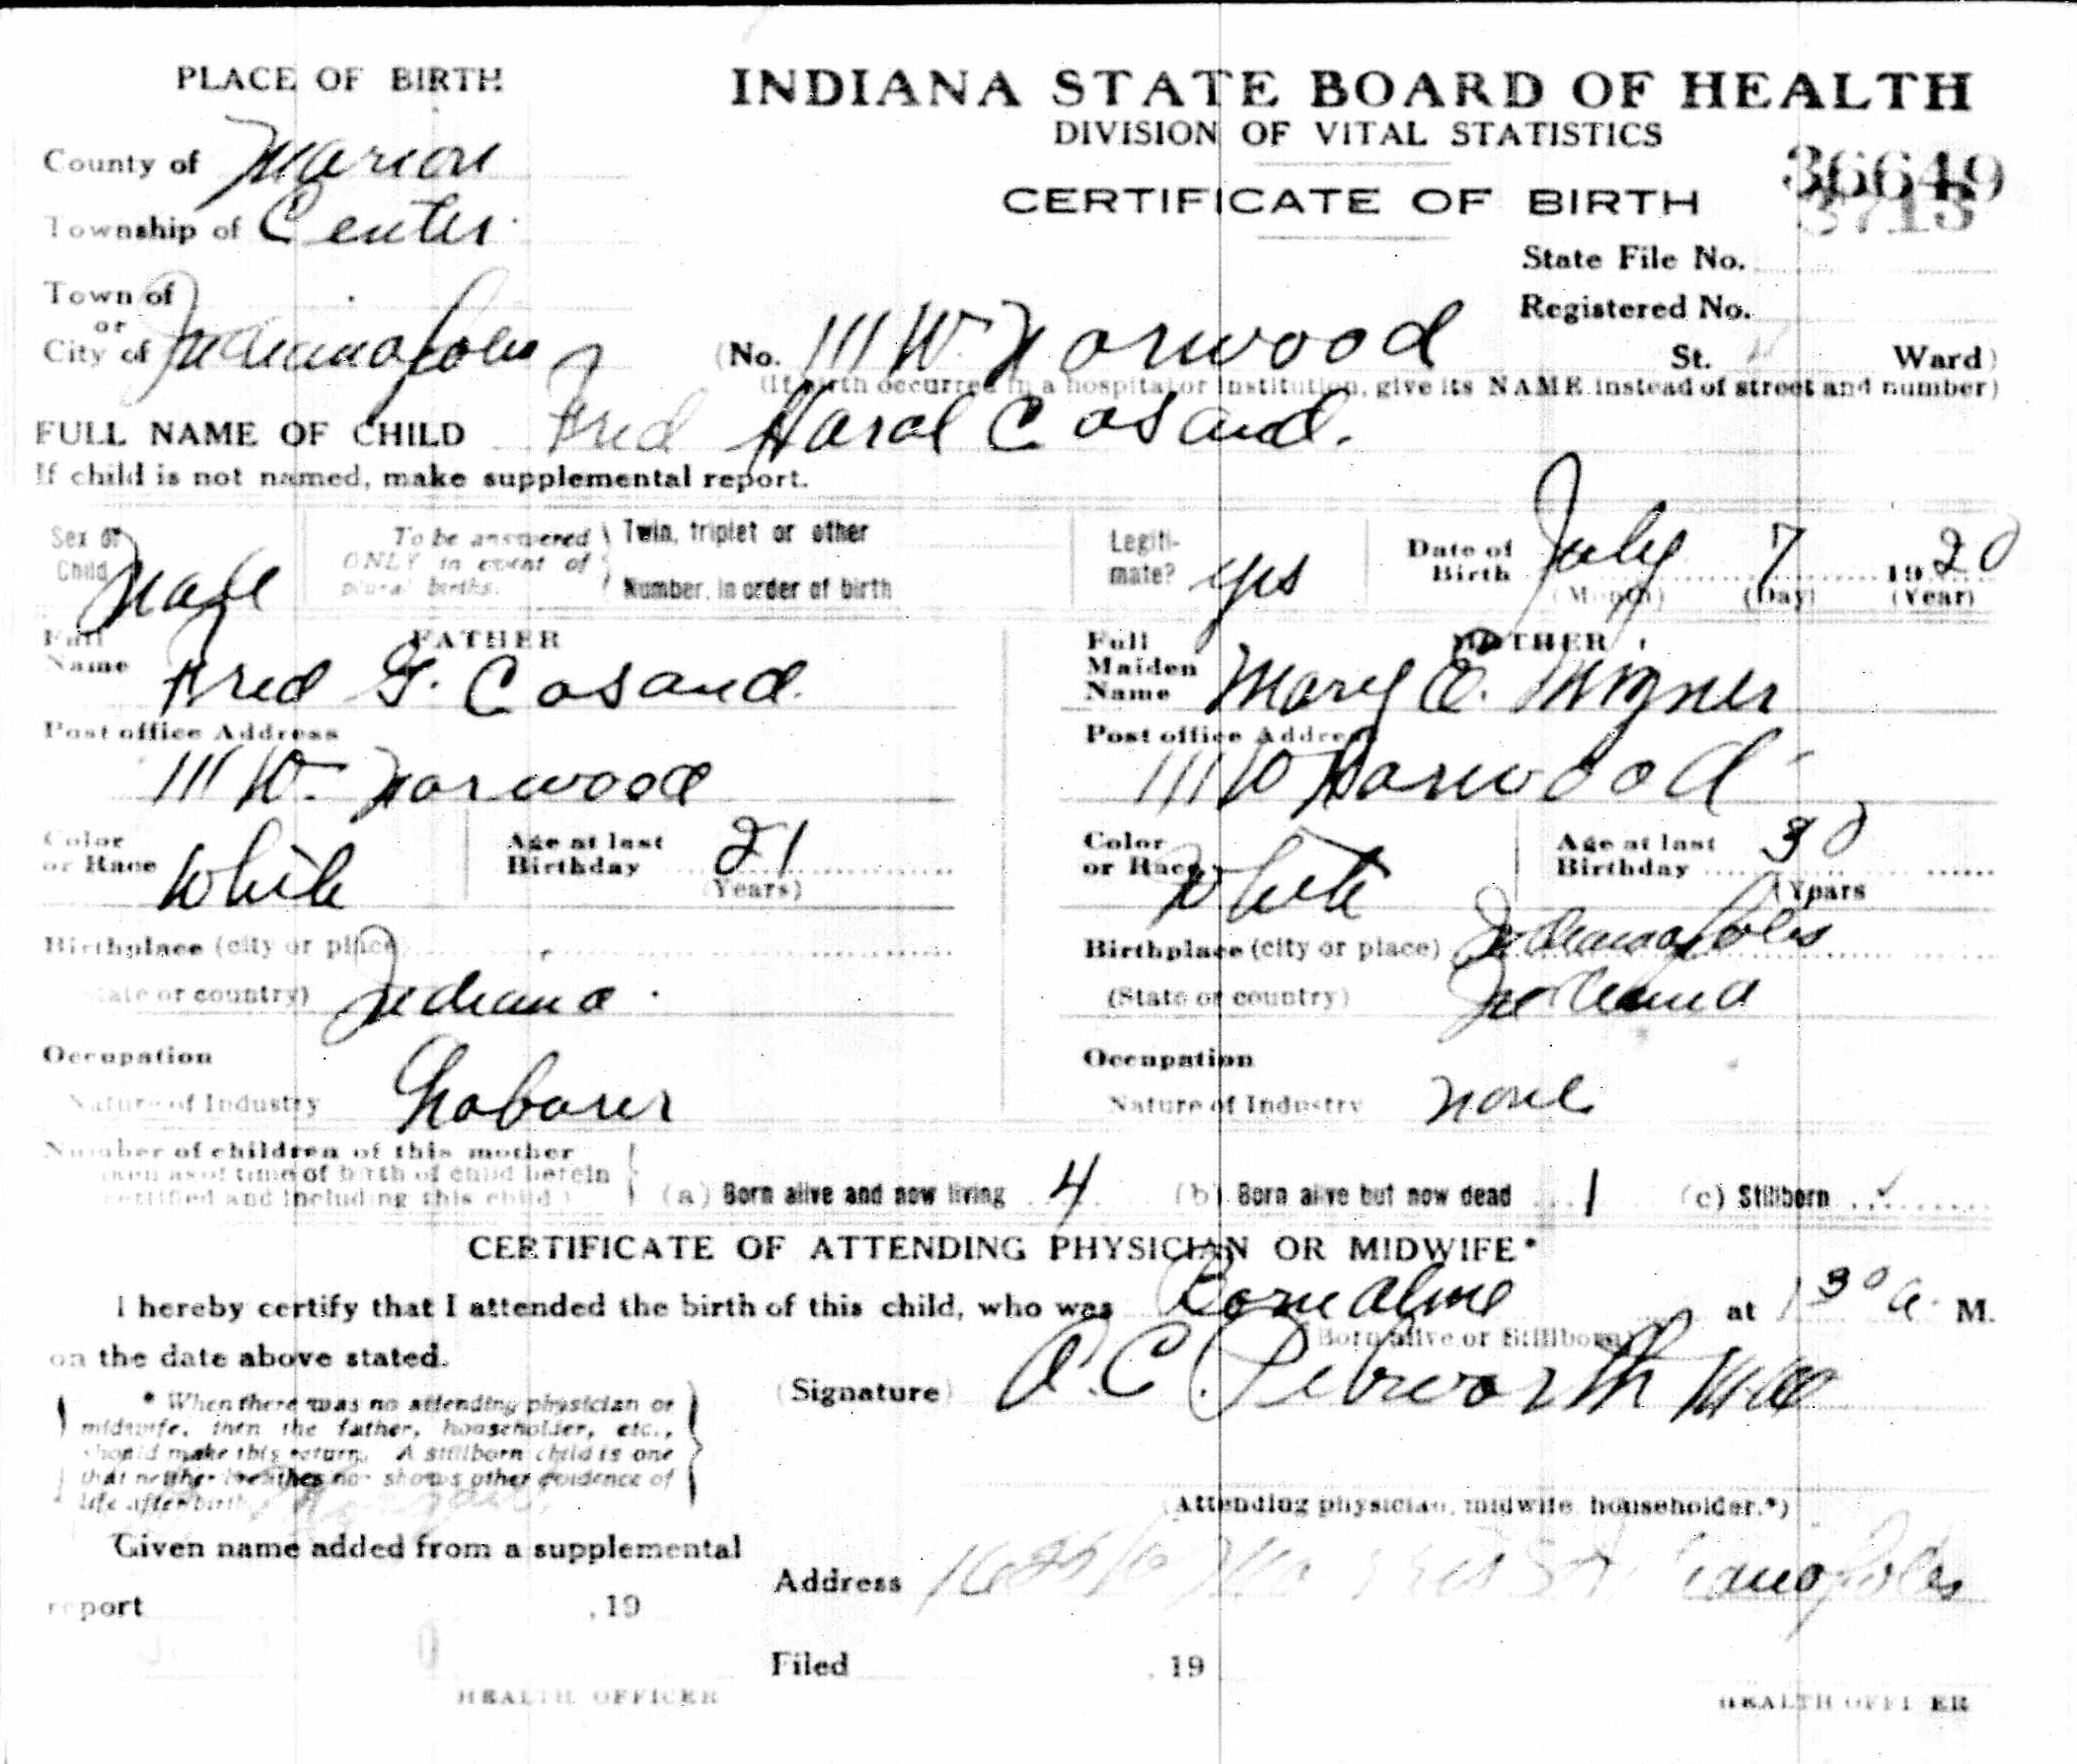 PLACE OF BIRTH
INDIANA STATE BOARD OF HEALTH
DIVISION OF VITAL STATISTICS
36649
3713
CERTIFICATE OF BIRTH
County of Marion
Township of Center
Town of
or
City of Indianapolis
State File No.
Registered No.
(No. 111 W. Norwood St. Ward)
(If birth occurred in a hospital or institution, give its NAME instead of street and number)
FULL NAME OF CHILD Fred Harol Casand.
If child is not named, make supplemental report.
Sex of Child Male
To be answered ONLY in event of plural births.
Twin, triplet or other
Number, in order of birth
Legiti-mate? yes
Date of Birth July 7 1920
(Month) (Day) (Year)
FATHER
Full Name Fred G. Casand.
Post office Address
111 W. Norwood
Color or Race White
Age at last Birthday 21
(Years)
Birthplace (city or place)
(State or country) Indiana.
Occupation
Nature of Industry Laborer
MOTHER
Full Maiden Name Mary E.
Post office Address
111 W Norwood
Color or Race White
Age at last Birthday 30
(Years
Birthplace (city or place) Indianapolis
(State or country) Indiana
Occupation
Nature of Industry none
Number of children of this mother
taken as of time of birth of child herein
certified and including this child)
(a) Born alive and now living 4 (b) Born alive but now dead 1 (c) Stillborn ✓
CERTIFICATE OF ATTENDING PHYSICIAN OR MIDWIFE*
I hereby certify that I attended the birth of this child, who was Born alive at 1 30 a. M.
(Born alive or Stillborn)
on the date above stated.
(Signature) A. C. Pebworth M D
* When there was no attending physician or
midwife, then the father, householder, etc.,
should make this return. A stillborn child is one
that neither breathes nor shows other evidence of
life after birth.
(Attending physician, midwife, householder.*)
Given name added from a supplemental
report , 19
Address
Filed , 19
HEALTH OFFICER
HEALTH OFFICER